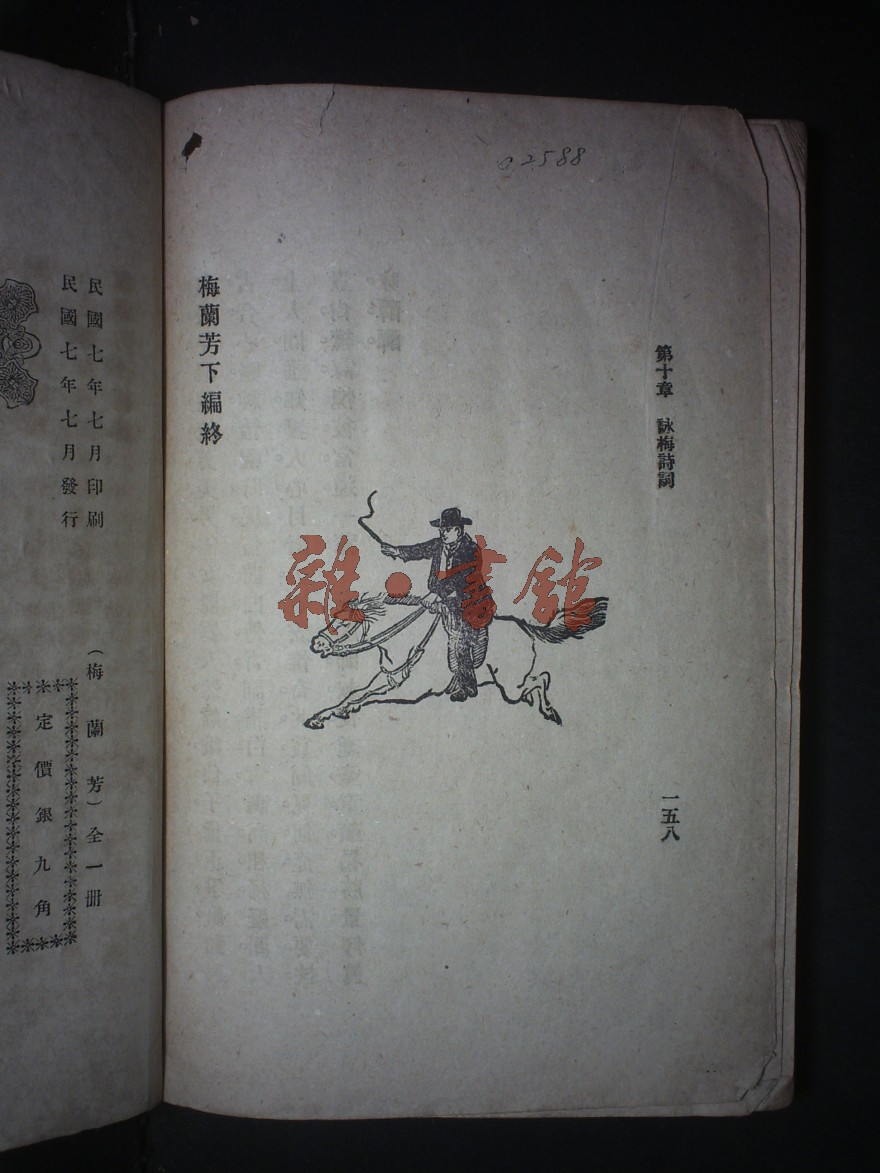 02588
第十章 詠梅詩詞
一五八
梅蘭芳下編終
雜·書館
民國七年七月印刷
民國七年七月發行
(梅蘭芳)全一冊
定價銀九角